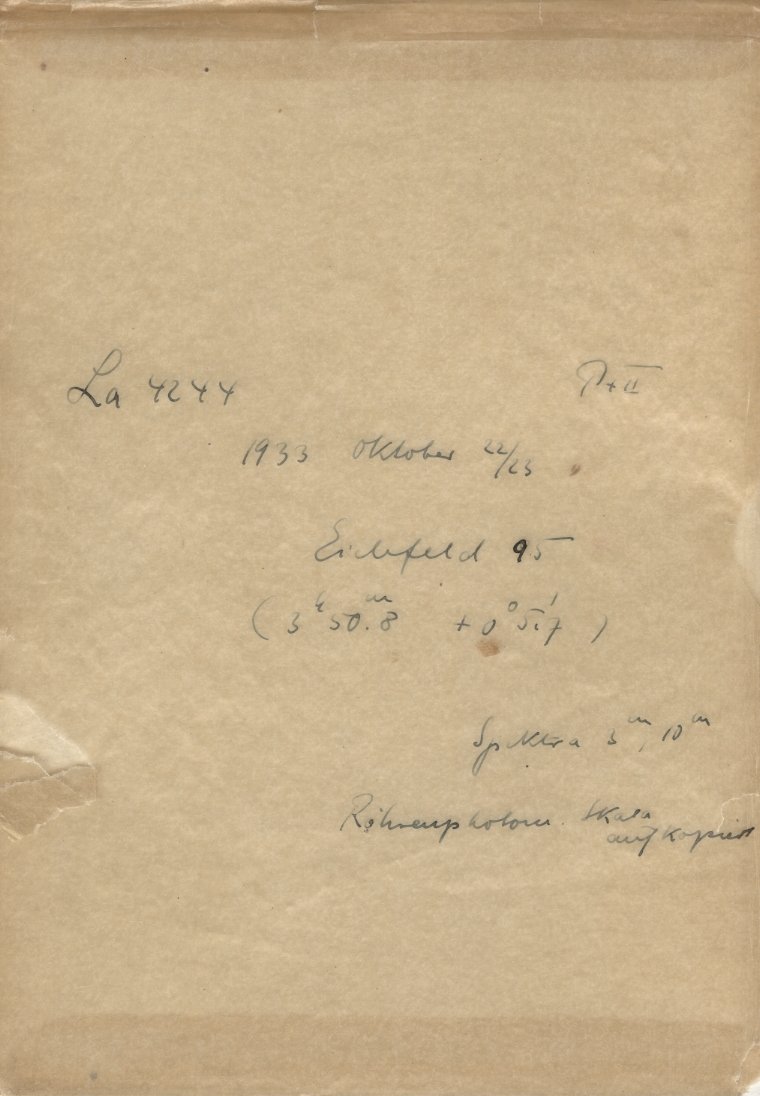 La 4244
1933 Oktober 22/23
Eichfeld 95
(3ʰ50ᵐ.8 +0°51'.7)
Spektra 3ᵐ, 10ᵐ
Röhrenphotom. Skala
aufkopiert